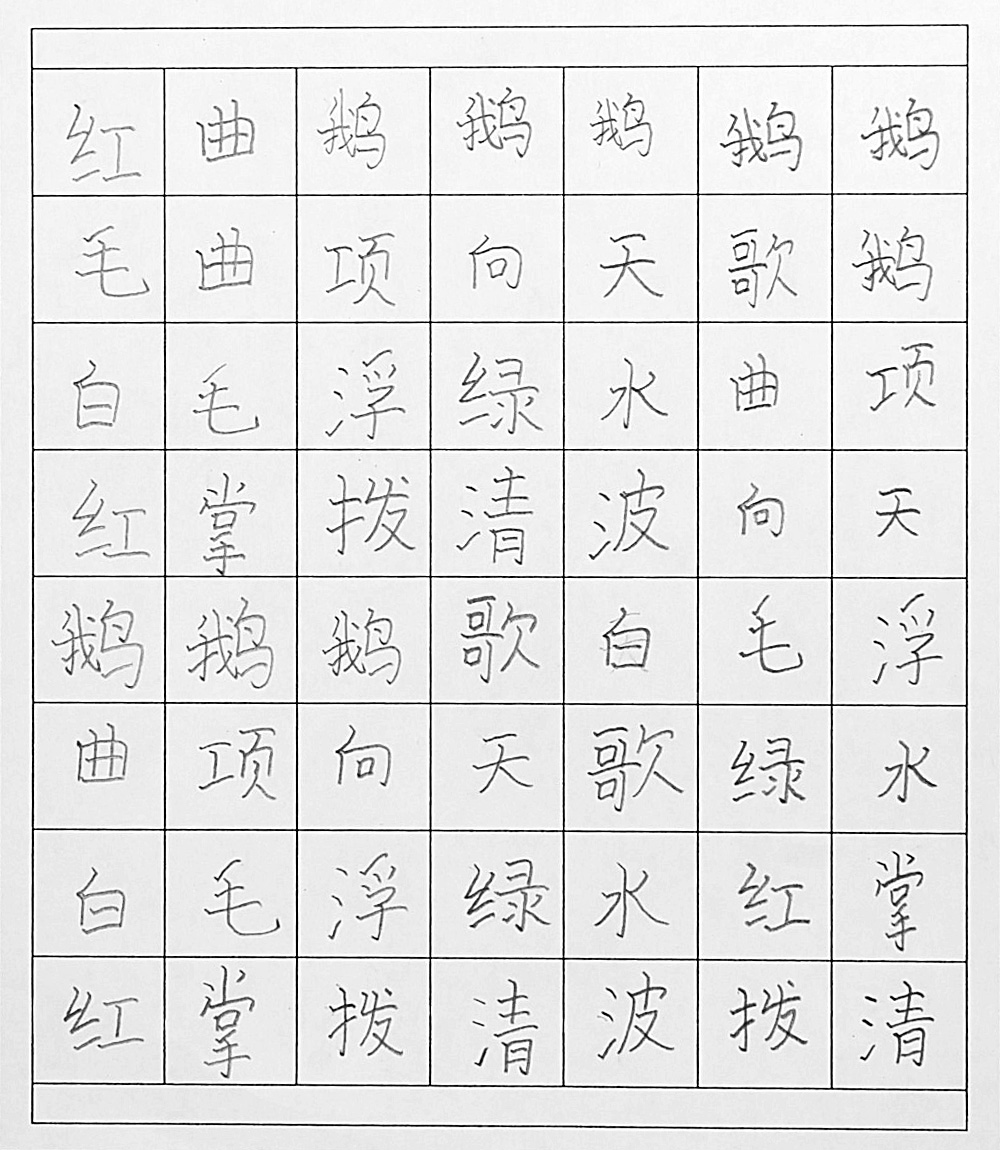 红曲鹅鹅鹅鹅鹅
毛曲项向天歌鹅
白毛浮绿水曲项
红掌拨清波向天
鹅鹅鹅歌白毛浮
曲项向天歌绿水
白毛浮绿水红掌
红掌拨清波拨清